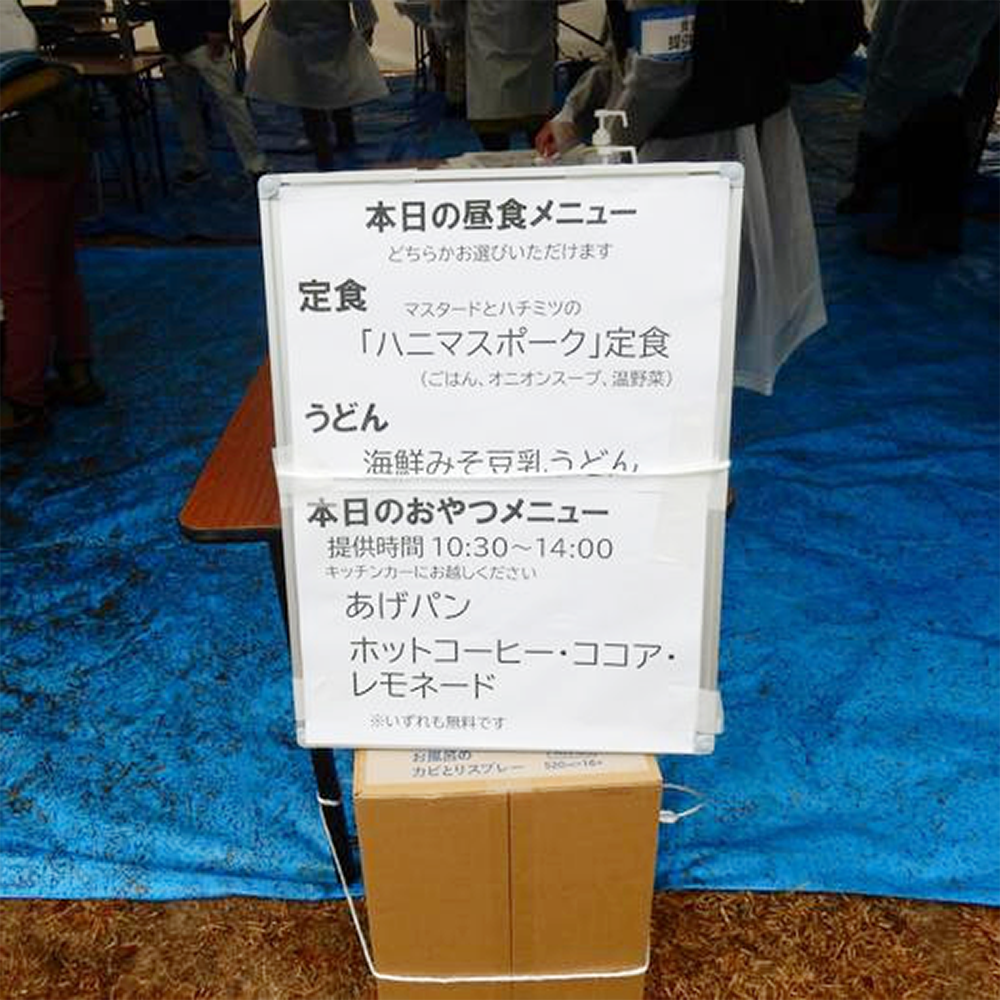 本日の昼食メニュー
どちらかお選びいただけます
定食
マスタードとハチミツの
「ハニマスポーク」定食
(ごはん、オニオンスープ、温野菜)
うどん
海鮮みそ豆乳うどん
本日のおやつメニュー
提供時間 10:30～14:00
キッチンカーにお越しください
あげパン
ホットコーヒー・ココア・
レモネード
※いずれも無料です
お風呂の
カビとりスプレー